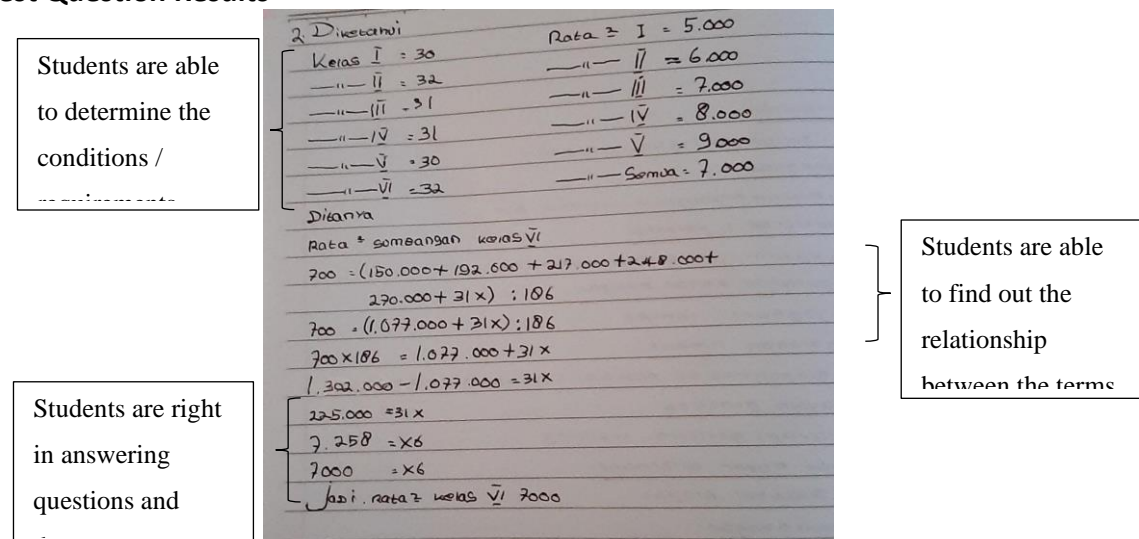 est Question Results
Students are able
to determine the
conditions /
requirements
2. Diketahui
Kelas I = 30
—"— II = 32
—"— III = 31
—"— IV = 31
—"— V = 30
—"— VI = 32
Rata 2 I = 5.000
—"— II = 6.000
—"— III = 7.000
—"— IV = 8.000
—"— V = 9000
—"— Semua = 7.000
Ditanya
Rata 2 sumbangan kelas VI
700 = (150.000 + 192.000 + 217.000 + 248.000 +
270.000 + 31x) : 186
700 = (1.077.000 + 31x) : 186
700 x 186 = 1.077.000 + 31x
1.302.000 - 1.077.000 = 31x
225.000 = 31x
7.258 = x6
7000 = x6
Jadi. rata2 kelas VI 7000
Students are able
to find out the
relationship
between the terms
Students are right
in answering
questions and